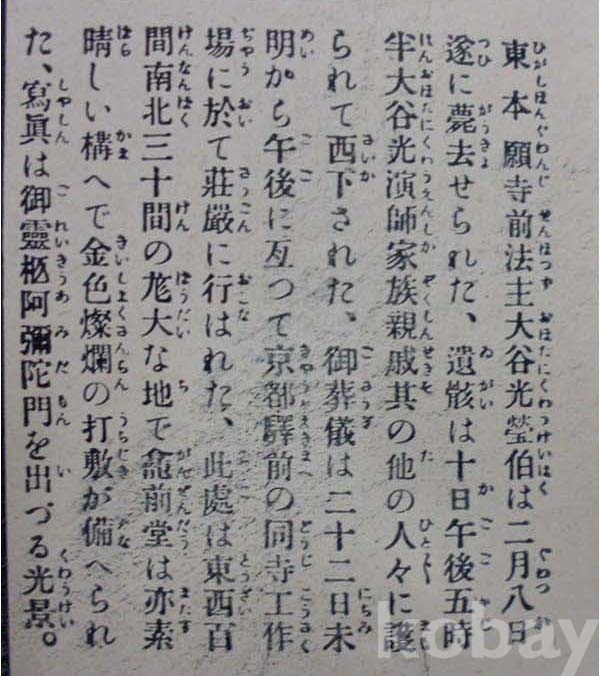 東本願寺前法主大谷光瑩伯は二月八日
遂に薨去せられた、遺骸は十日午後五時
半大谷光演師家族親戚其の他の人々に護
られて西下された、御葬儀は二十二日未
明から午後に亙つて京都驛前の同寺工作
場に於て莊嚴に行はれた、此處は東西百
間南北三十間の尨大な地で龕前堂は亦素
晴しい構へで金色燦爛の打敷が備へられ
た、寫眞は御靈柩阿彌陀門を出づる光景。
kobay